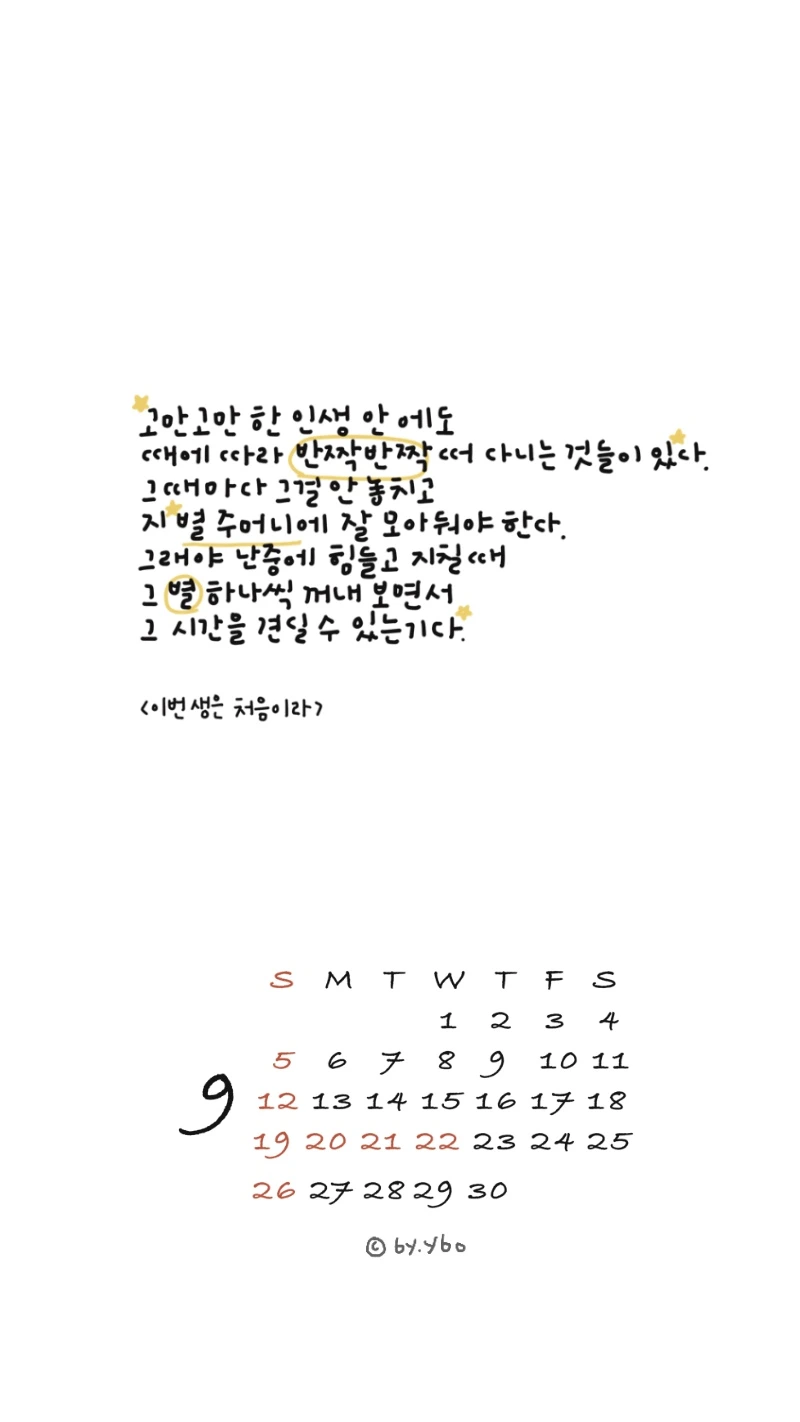 고만고만 한 인생 안 에도
때에 따라 반짝반짝 떠 다니는 것들이 있다.
그때마다 그걸 안 놓치고
지 별 주머니에 잘 모아둬야 한다.
그래야 난중에 힘들고 지칠 때
그 별 하나씩 꺼내 보면서
그 시간을 견딜 수 있는기다.
<이번 생은 처음이라>
9
S M T W T F S
1 2 3 4
5 6 7 8 9 10 11
12 13 14 15 16 17 18
19 20 21 22 23 24 25
26 27 28 29 30
© by.ybo